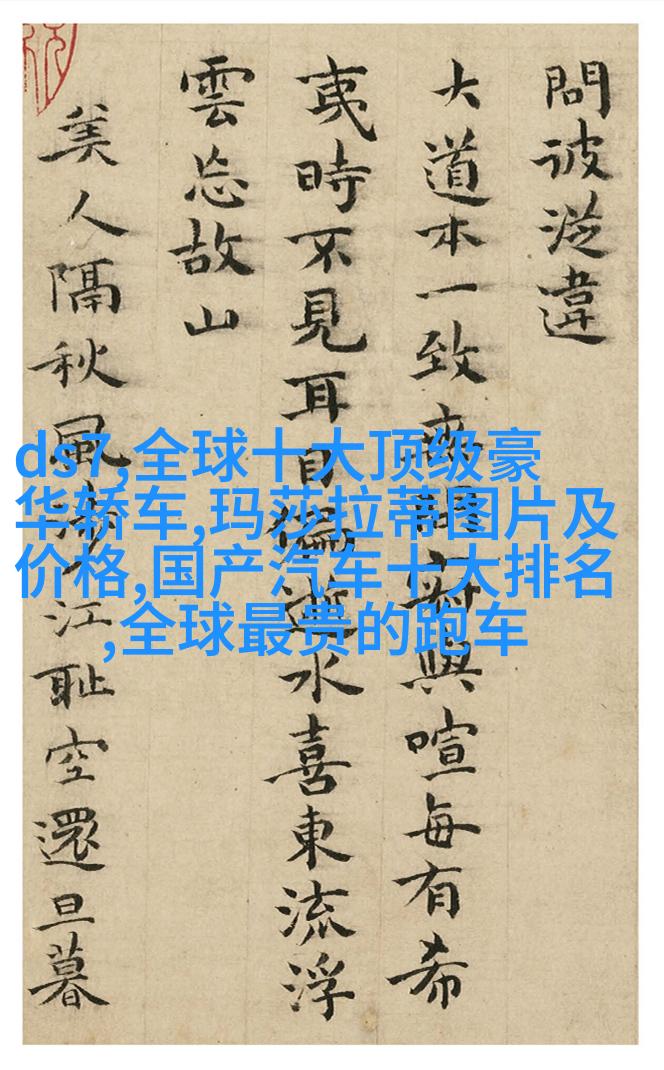 問彼從違
大道本一致寂與喧每有希
夷時不見耳目偏逝水喜東流浮
雲忘故山
美人隔秋風涉江恥空還旦暮
ds7,全球十大顶级豪
华轿车,玛莎拉蒂图片及
价格,国产汽车十大排名
,全球最贵的跑车